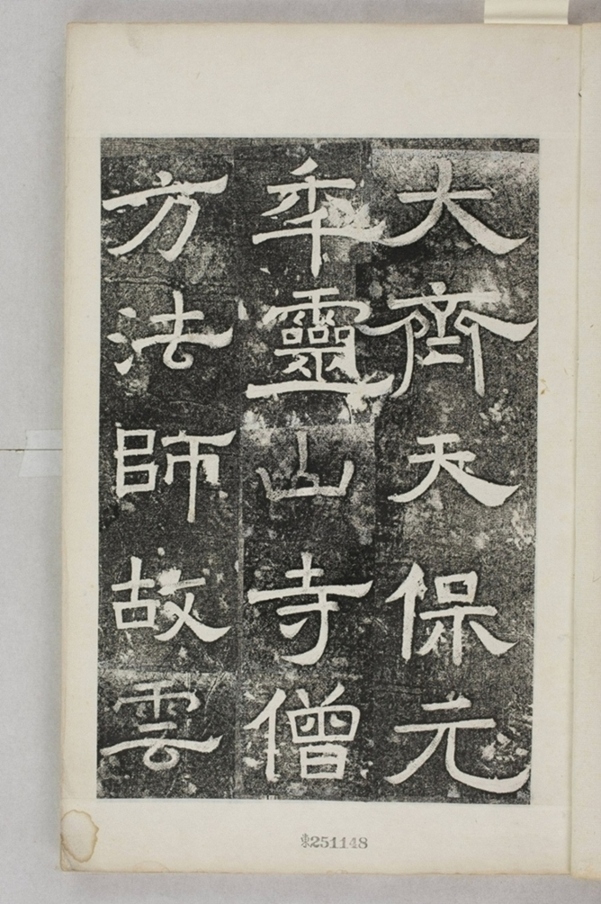 大齊天保元
年靈山寺僧
方法師故雲
東251148